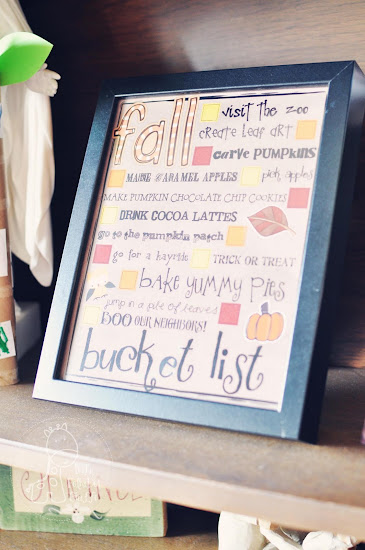 fall
visit the zoo
create leaf art
carve PUMPKINS
MAKE CARAMEL APPLES
pick apples
MAKE PUMPKIN CHOCOLATE CHIP COOKIES
DRINK COCOA LATTES
go to the pumpkin patch
go for a hayride
TRICK OR TREAT
bake yummy pies
jump in a pile of leaves
BOO OUR NEIGHBORS!
bucket list